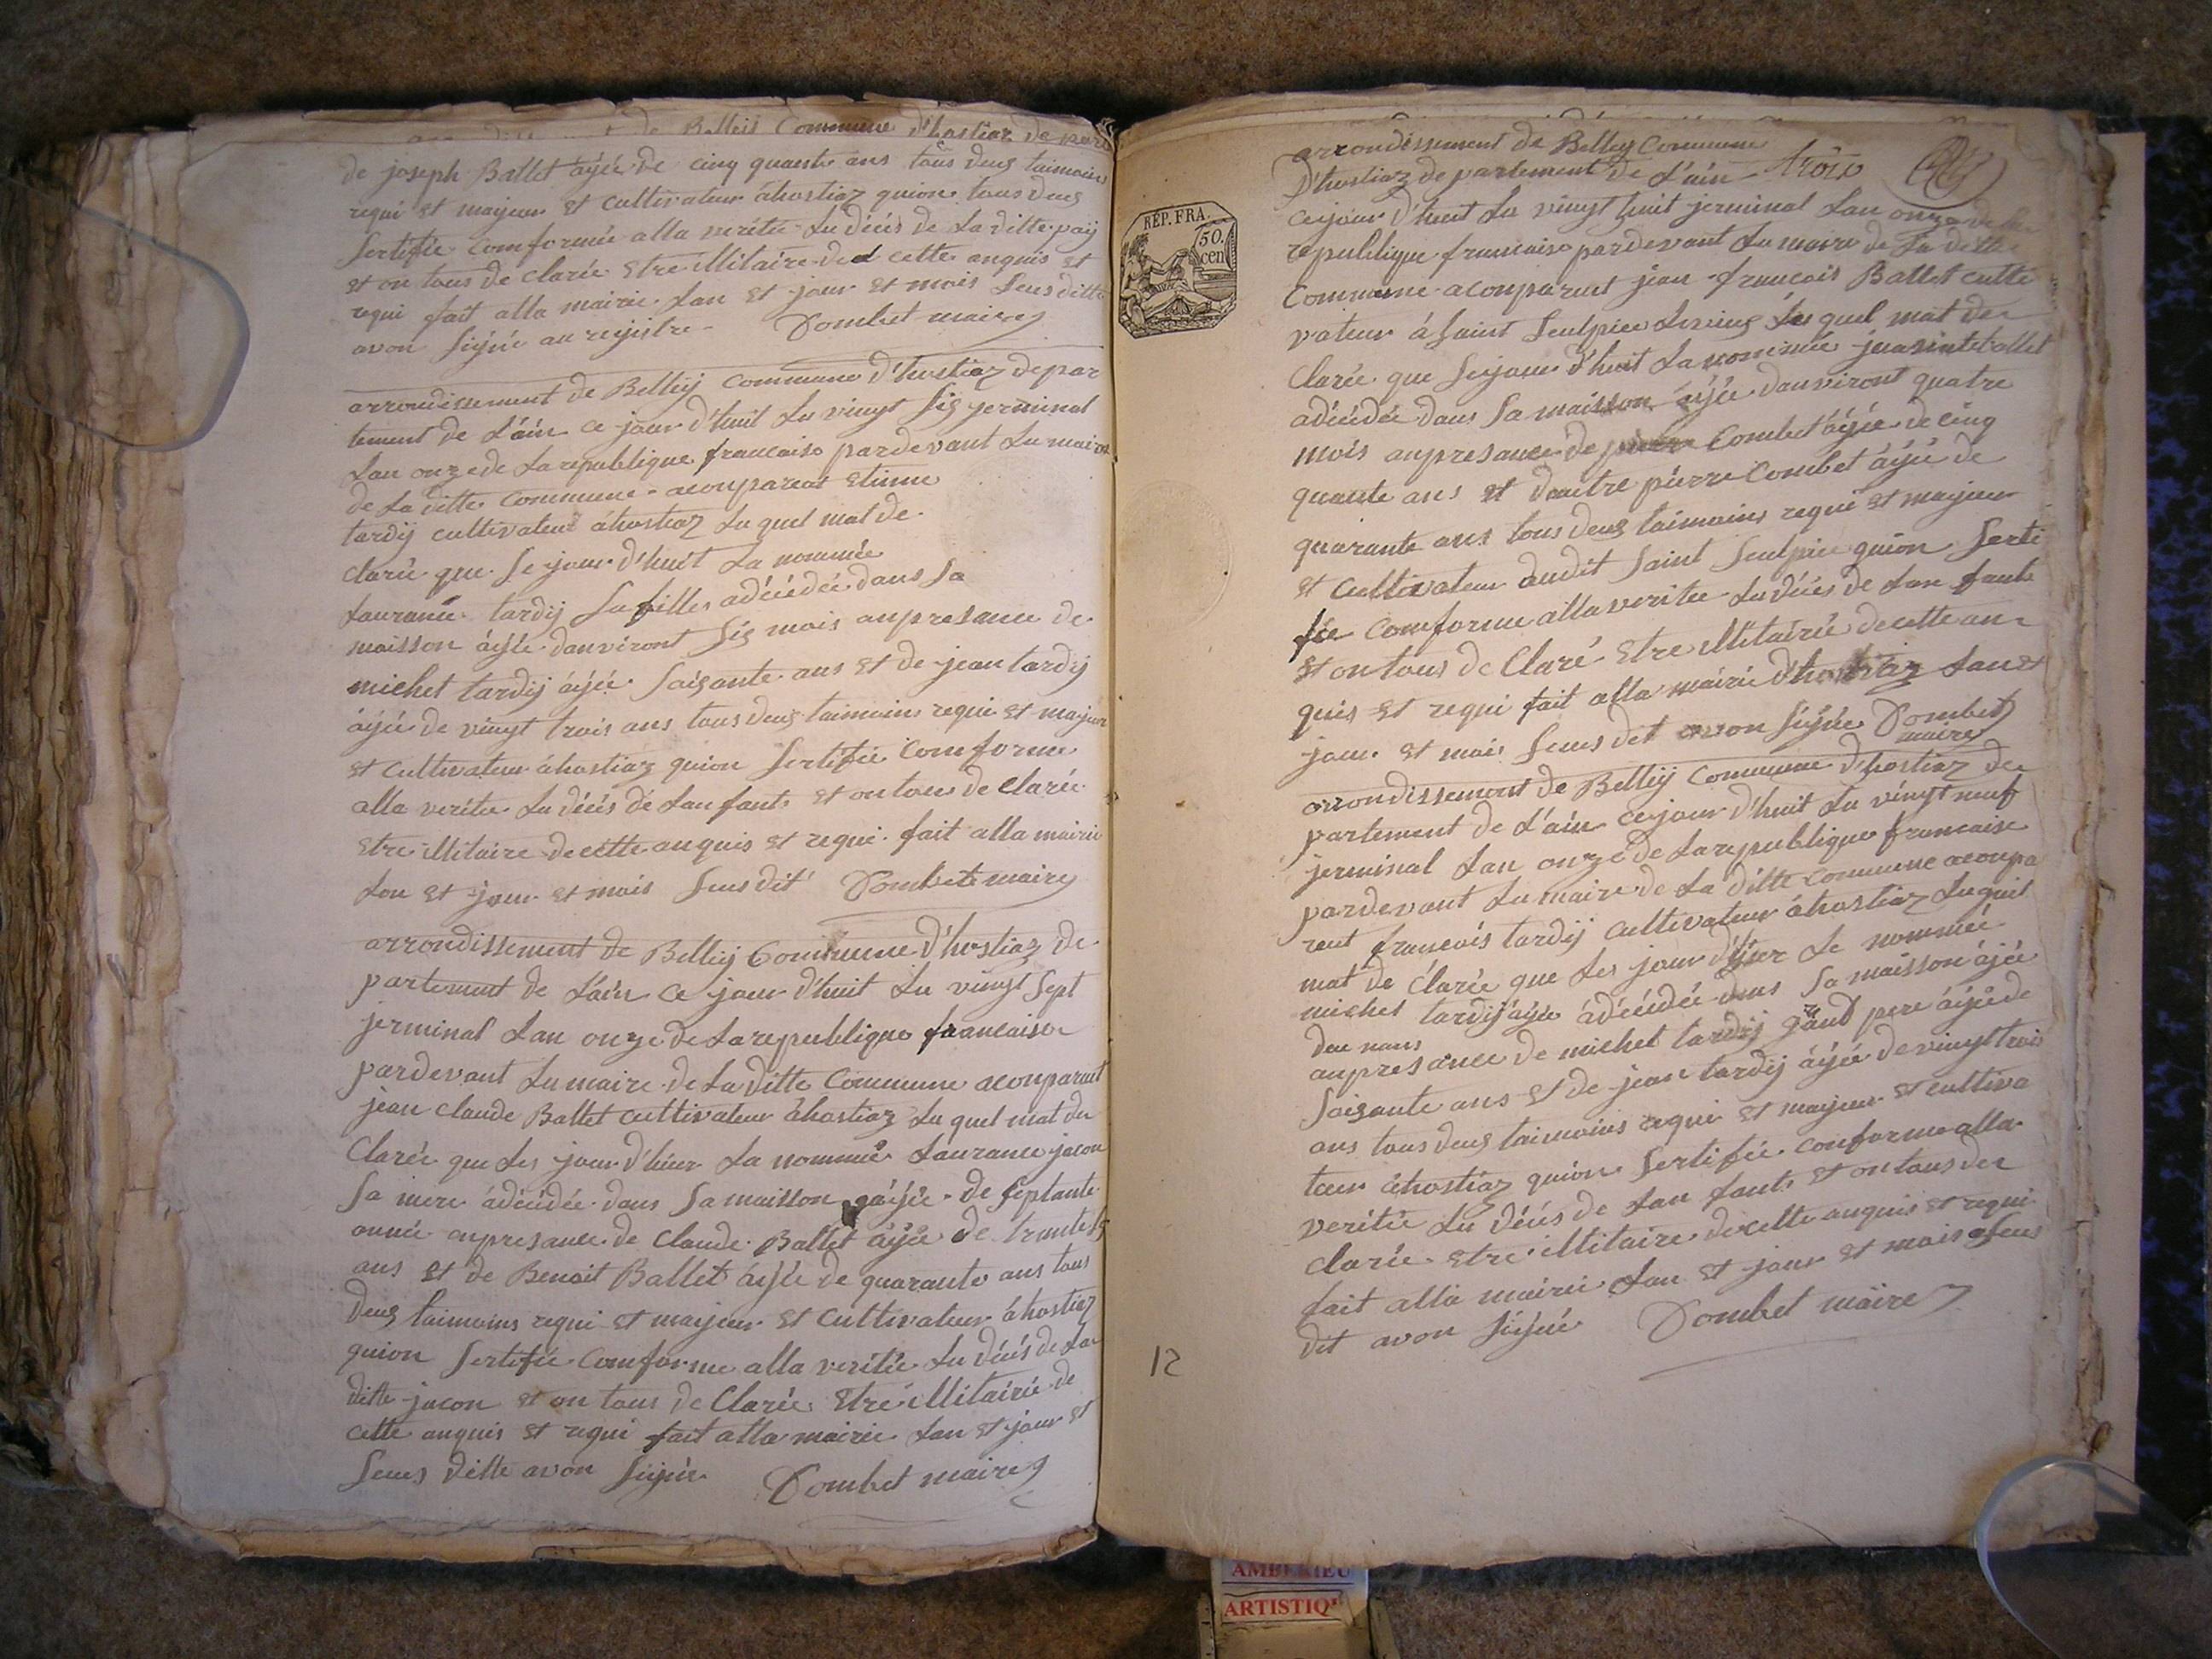 de Belleij Commune d'hostiaz de par
de joseph Ballet âýée de cinq quante ans tous deus taimoins
requi et majeur et cultivateur áhostiaz quion tous deus
Sertifié comformée alla verite du décés de La ditte pay
et on tous de clarée Etre illitaire de cette anquis et
requi fait alla mairie Lan et jour et mois Seus ditte
avon Sijnée au rejistre Dombet maire
arrondissement de Belleij Commune d'hostiaz depar
tement de L'áin ce jour d'huit Lu vinyt sis jerminal
Lan onze de La republique francaise pardevant Lu maire
de La ditte Commune acouparent Etinne
tardij cultivateur áhostiaz Lu quel mat de
clarée que Se jour d'huit La nommée
Laurance tardij Sa fille adécédée dans Sa
maisson áýée danviront Sis mois anpresance de
michel tardij áýée Soisante ans et de jean tardij
áýée de vinyt trois ans tous deus taimoins requi et majeur
et Cultivateur áhostiaz quion Sertifiée comforme
alla verite Lu décés de Lan fant et on tous de clarée
Etre illitaire de cette anquis et requi fait alla mairie
Lan et jour et mois Seus dit Dombet maire
arrondissement de Belleij Commune d'hostiaz de
partement de L'áin ce jour d'huit Lu vinyt Sept
jerminal Lan onze de La republique francaise
pardevant Lu maire de La ditte Commune acouparant
jean claude Ballet cultivateur áhostiaz Lu quel mat du
Clarée que Les jour d'hier La nommée Laurance jacon
Sa mere ádécédée dans Sa maisson áýée de Septante
année anpresance de Claude Ballet áýée de trante
ans et de Benoit Ballet áýée de quarante ans tous
Deus taimoins requi et majeur et Cultivateur áhostiaz
quion Sertifée Comforme alla veritée Lu décés de La
ditte jacon et on tous de Clarée Etre illitairée de
cette anquis et requi fait alla mairie Lan et jour et
Seus ditte avon Sijnée Dombet maire
arrondissement de Belleij Commune
D'hostiaz de partement de L'áin trois
RÉP. FRA.
50.
cen
cejour d'huit Lu vinyt huit jerminal Lan onze de La
republique francaise pardevant Lu maire de La ditte
Commune acouparent jean francois Ballet culti
vateur á Saint Seulpice quel mat de
Clarée que Sejour d'huit La nommée
adécédée dans Sa maisson áýée danviront quatre
mois anpresance de Combet áýée de cinq
quante ans et dautre piérre Combet áýée de
quarante ans tous deus taimoins requi et majeur
et Cultivateur audit Saint Seulpice quion Serti
fée comforme alla verite Lu décés de Lan fant
et on tous de Claré Etre illitairée de cette an
quis et requi fait alla mairie d'hostiaz Lan et
jour et mois Seus dit avon Sijnée Dombet
maire
arrondissement de Belleij Commune D'hostiaz de
partement de L'áin cejour d'huit Lu vinyt neuf
jerminal Lan onze de La republique francaise
pardevant Lu maire de La ditte Commune acoupa
rent francois tardij Cultivateur áhostiaz Lu quel
mat de clarée que Les jour d'hier Le nommée
michel tardij áýée ádécédée dans Sa maisson ájée
deu nans
anpresance de michel tardij gránd pere áýée de
Soisante ans et de jean tardij áýée de vinyt trois
ans tous deus taimoins requi et majeur et cultiva
teur áhostiaz quion Sertifée conforme alla
veritée Lu décés de Lan fant et on tous de
clarée Etre illitaire de cette anquis et requi
fait alla mairie Lan et jour et mois Seus
dit avon Sijnée Dombet maire
12
AMBERIEU
ARTISTIQ'